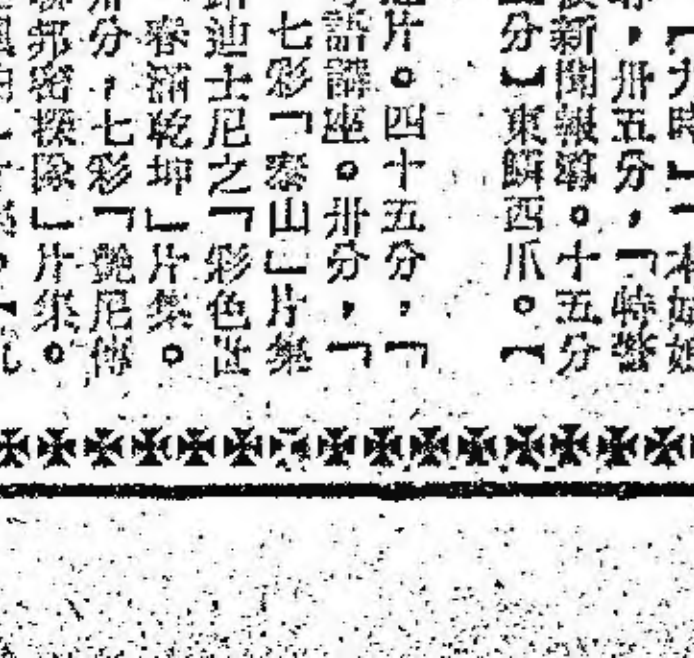 時】「
，卅五分，「特警
新聞報導。十五分
分】東鱗西爪。【
片。四十五分，「
語講座。卅分，「
七彩「泰山」片集
迪士尼之「彩色世
春滿乾坤」片集。
分，七彩「艷尼傳
邦密探隊」片集。